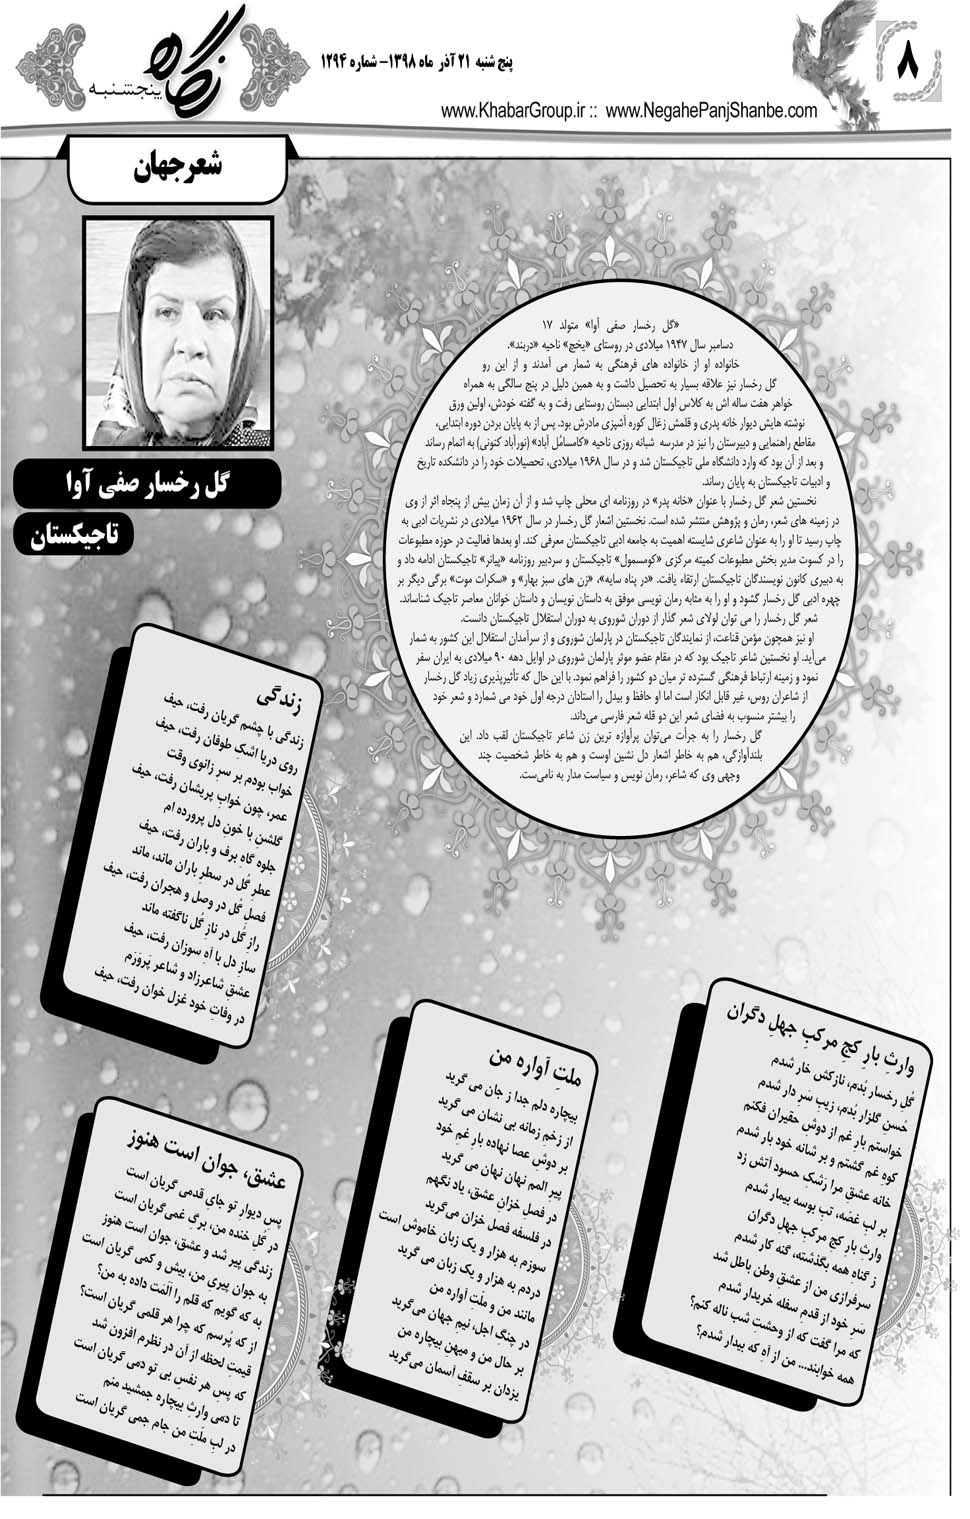 ۸
پنج شنبه ۲۱ آذر ماه ۱۳۹۸- شماره ۱۲۹۴
www.KhabarGroup.ir :: www.NegahePanjShanbe.com
نگاه
پنجشنبه
شعرجهان
گل رخسار صفی آوا
تاجیکستان
«گل رخسار صفی آوا» متولد ۱۷
دسامبر سال ۱۹۴۷ میلادی در روستای «یخچ» ناحیه «دربند».
خانواده او از خانواده های فرهنگی به شمار می آمدند و از این رو
گل رخسار نیز علاقه بسیار به تحصیل داشت و به همین دلیل در پنج سالگی به همراه
خواهر هفت ساله اش به کلاس اول ابتدایی دبستان روستایی رفت و به گفته خودش، اولین ورق
نوشته هایش دیوار خانه پدری و قلمش زغال کوره آشپزی مادرش بود. پس از به پایان بردن دوره ابتدایی،
مقاطع راهنمایی و دبیرستان را نیز در مدرسه شبانه روزی ناحیه «کامسامُل آباد» (نورآباد کنونی) به اتمام رساند
و بعد از آن بود که وارد دانشگاه ملی تاجیکستان شد و در سال ۱۹۶۸ میلادی، تحصیلات خود را در دانشکده تاریخ
و ادبیات تاجیکستان به پایان رساند.
نخستین شعر گل رخسار با عنوان «خانه پدر» در روزنامه ای محلی چاپ شد و از آن زمان بیش از پنجاه اثر از وی
در زمینه های شعر، رمان و پژوهش منتشر شده است. نخستین اشعار گل رخسار در سال ۱۹۶۲ میلادی در نشریات ادبی به
چاپ رسید تا او را به عنوان شاعری شایسته اهمیت به جامعه ادبی تاجیکستان معرفی کند. او بعدها فعالیت در حوزه مطبوعات
را در کسوت مدیر بخش مطبوعات کمیته مرکزی «کومسمول» تاجیکستان و سردبیر روزنامه «پیانر» تاجیکستان ادامه داد و
به دبیری کانون نویسندگان تاجیکستان ارتقاء یافت. «در پناه سایه»، «زن های سبز بهار» و «سکرات موت» برگی دیگر بر
چهره ادبی گل رخسار گشود و او را به مثابه رمان نویسی موفق به داستان نویسان و داستان خوانان معاصر تاجیک شناساند.
شعر گل رخسار را می توان لولای شعر گذار از دوران شوروی به دوران استقلال تاجیکستان دانست.
او نیز همچون مؤمن قناعت، از نمایندگان تاجیکستان در پارلمان شوروی و از سرآمدان استقلال این کشور به شمار
می‌آید. او نخستین شاعر تاجیک بود که در مقام عضو موثر پارلمان شوروی در اوایل دهه ۹۰ میلادی به ایران سفر
نمود و زمینه ارتباط فرهنگی گسترده تر میان دو کشور را فراهم نمود. با این حال که تأثیرپذیری زیاد گل رخسار
از شاعران روس، غیر قابل انکار است اما او حافظ و بیدل را استادان درجه اول خود می شمارد و شعر خود
را بیشتر منسوب به فضای شعر این دو قله شعر فارسی می‌داند.
گل رخسار را به جرأت می‌توان پرآوازه ترین زن شاعر تاجیکستان لقب داد. این
بلندآوازگی، هم به خاطر اشعار دل نشین اوست و هم به خاطر شخصیت چند
وجهی وی که شاعر، رمان نویس و سیاست مدار به نامی‌ست.
زندگی
زندگی با چشم گریان رفت، حیف
روی دریا اشکِ طوفان رفت، حیف
خواب بودم بر سر زانوی وقت
عمر، چون خواب پریشان رفت، حیف
گلشنِ با خونِ دل پرورده ام
جلوه گاهِ برف و باران رفت، حیف
عطرِ گُل در سطرِ باران ماند، ماند
فصلِ گُل در وصل و هجران رفت، حیف
رازِ گُل در نازِ گُل ناگفته ماند
سازِ دل با آهِ سوزان رفت، حیف
عشقِ شاعرزاد و شاعر پَروَرَم
در وفاتِ خود غزل خوان رفت، حیف
وارثِ بارِ کجِ مرکبِ جهلِ دگران
گُل رخسار بُدم، نازکش خار شدم
حُسنِ گلزار بُدم، زیبِ سَرِ دار شدم
خواستم بارِ غم از دوشِ حقیران فکنم
کوهِ غم گشتم و بر شانه خود بار شدم
خانه عشقِ مرا رَشک حسود آتش زد
بر لبِ غصّه، تب بوسه بیمار شدم
وارثِ بارِ کجِ مرکبِ جهل دگران
ز گناه همه بگذشته، گنه کار شدم
سرفرازی من از عشق وطن باطل شد
سَر خود از قدمِ سفله خریدار شدم
که مرا گفت که از وحشتِ شب ناله کنم؟
همه خوابند... من از آهِ که بیدار شدم؟
ملتِ آواره من
بیچاره دلم جدا ز جان می گرید
از زخمِ زمانه بی نشان می گرید
بر دوشِ عصا نهاده بارِ غمِ خود
پیر المم نهان نهان می گرید
در فصلِ خزانِ عشق، یاد نگهم
در فلسفه فصل خزان می‌گرید
سوزم به هزار و یک زبان خاموش است
دردم به هزار و یک زبان می گرید
مانند من و ملّتِ آواره من
در چنگِ اجل، نیمِ جهان می‌گرید
بر حال من و میهنِ بیچاره من
یزدان بر سقفِ آسمان می‌گرید
عشق، جوان است هنوز
پس دیوارِ تو جای قدمی گریان است
در گلِ خنده من، برگ غمی‌گریان است
زندگی پیر شد و عشق، جوان است هنوز
به جوان پیری من، بیش و کمی گریان است
به که گویم که قلم را اَلَمت داده به من؟
از که پُرسم که چرا هر قلمی گریان است؟
قیمتِ لحظه از آن در نظرم افزون شد
که پسِ هر نفسِ بی تو دمی گریان است
تا دمی وارثِ بیچاره جمشید منم
در لبِ ملّتِ من جام جمی گریان است